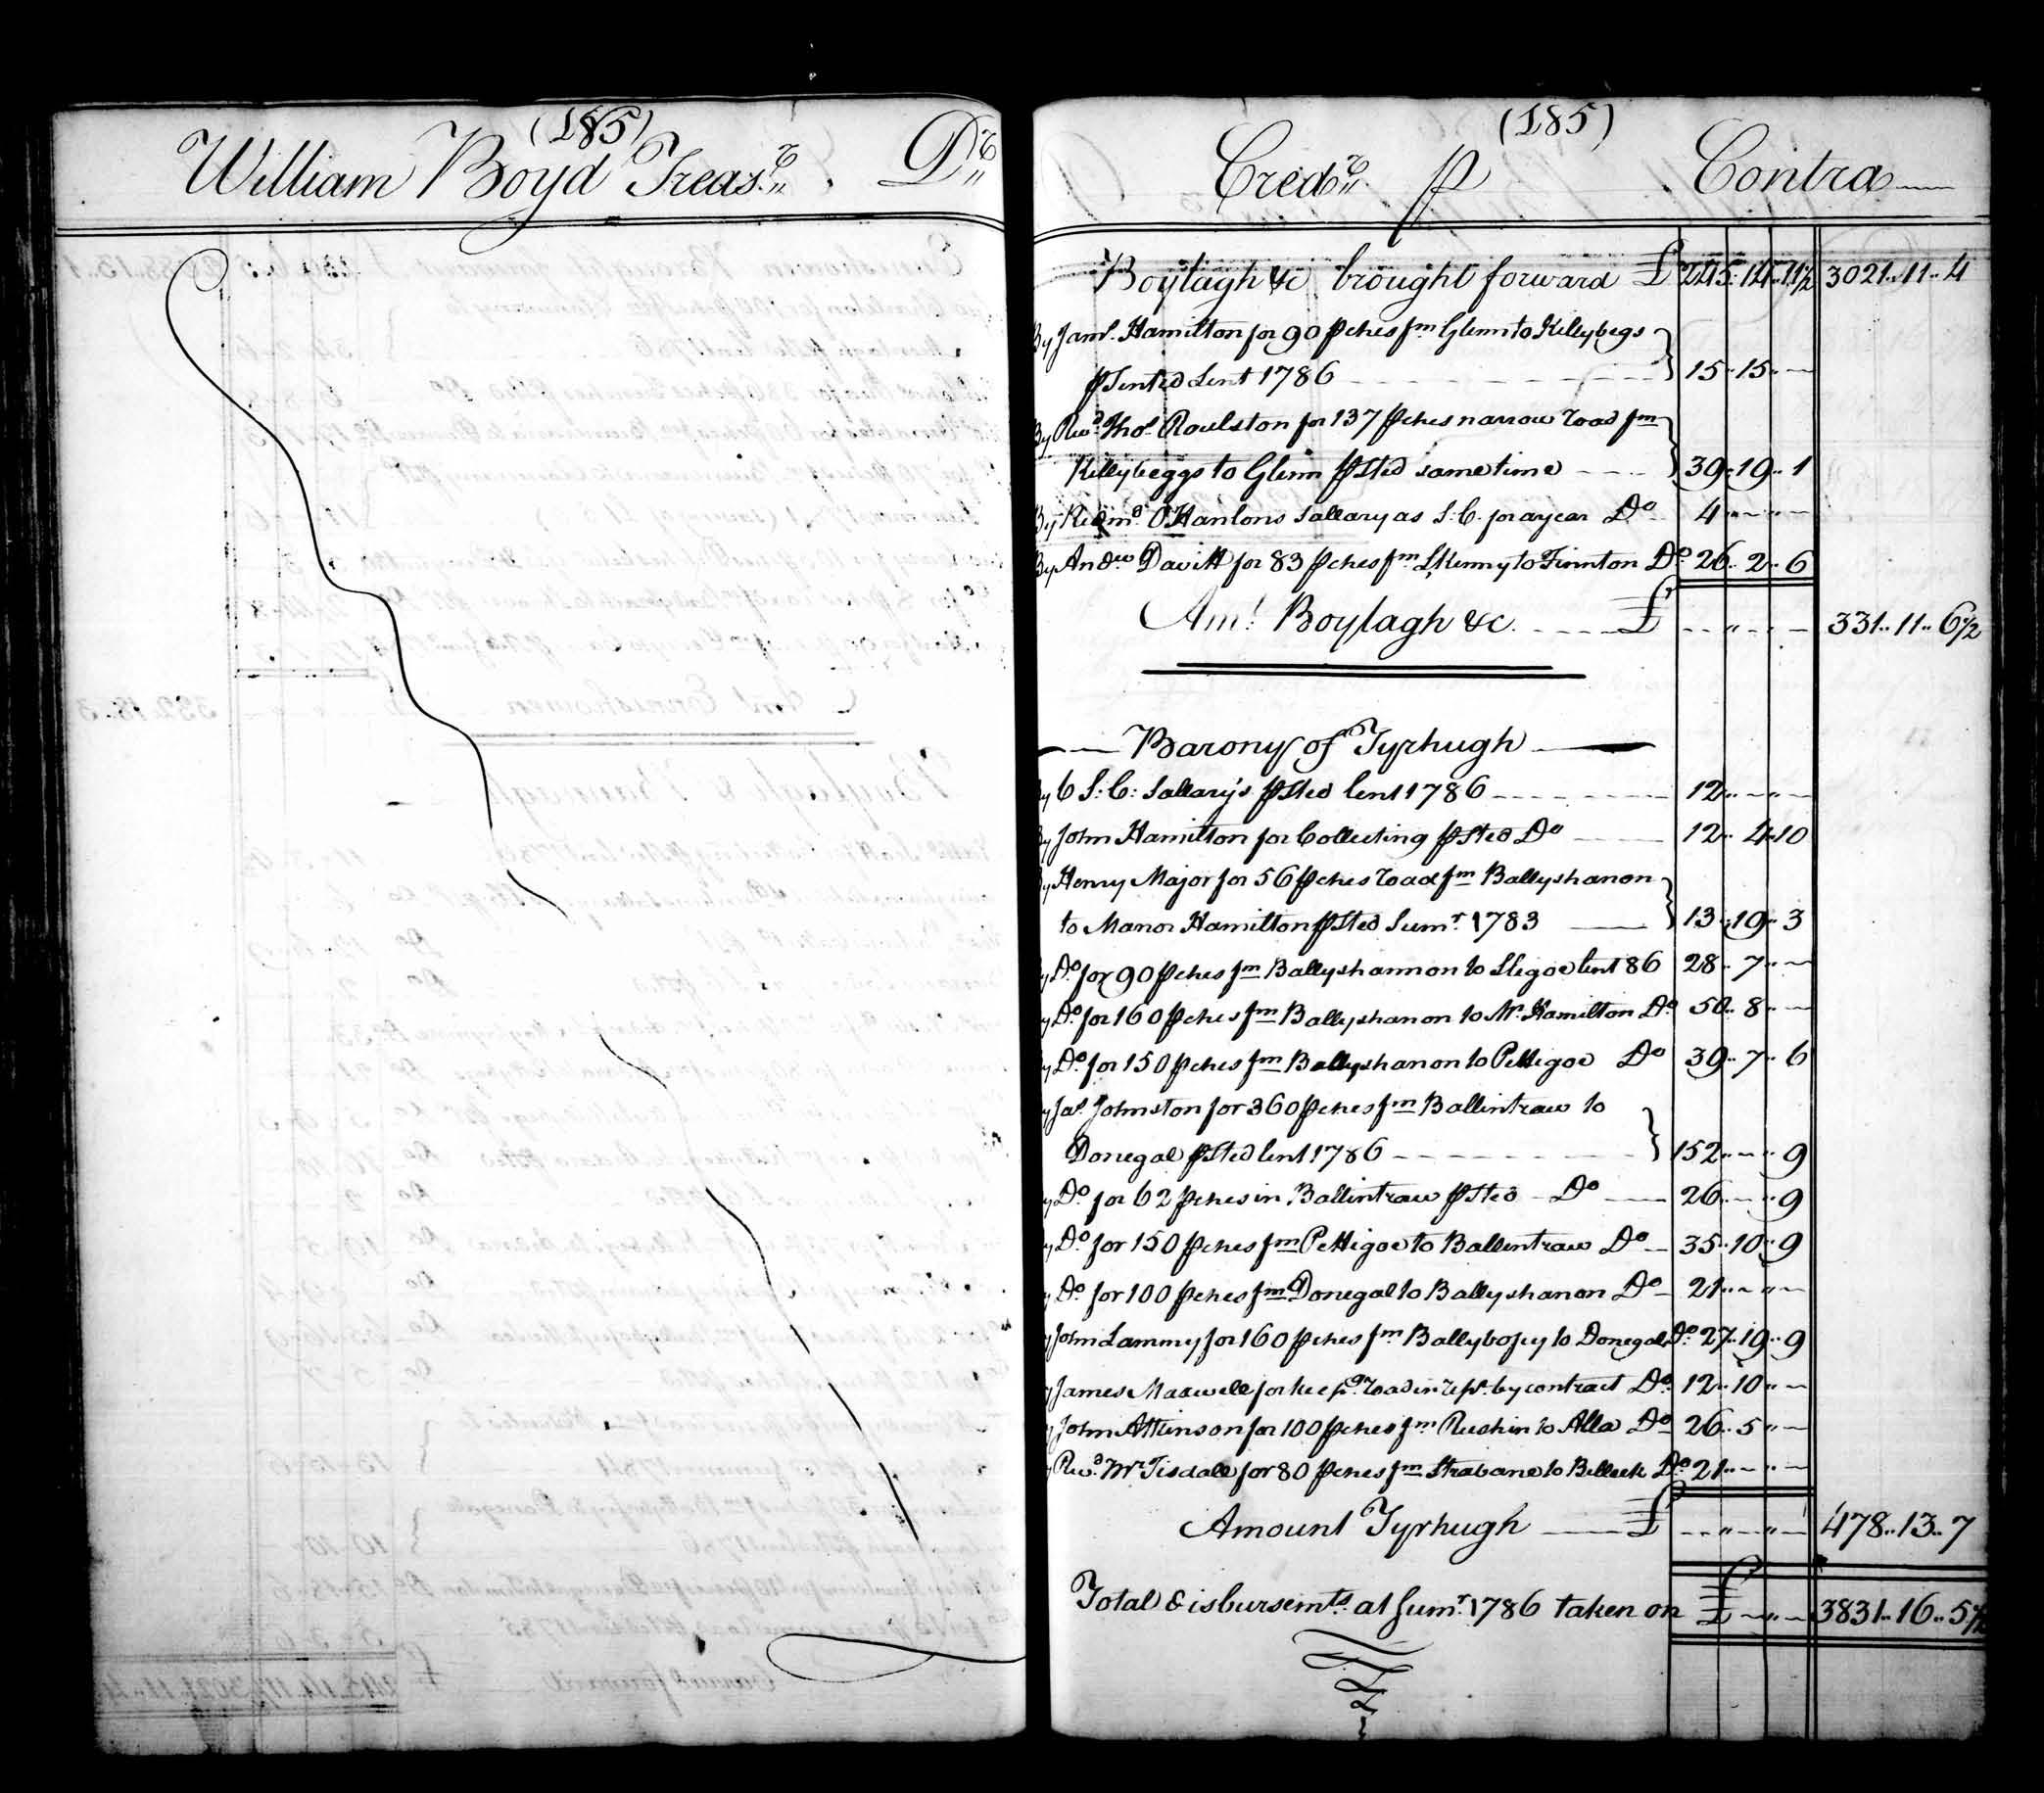 (185)
William Boyd Treasr. Dr.
(185)
Credr. p Contra
Boylagh &c brought forward £ 245..14..11½ 3021..11..4
By Jams. Hamilton for 90 pches fm Glenn to Killybegs
psented Lent 1786 15..15..—
By Revd. Thos. Roulston for 137 pches narrow road fm
Killybeggs to Glenn psted same time 39..19..1
By Redmd. O'Hanlons Sallary as S:C. for a year Do 4..—..—
By Andw Davitt for 83 pches fm LKenny to Finnton Do 26..2..6
Amt. Boylagh &c. £ 331..11..6½
Barony of Tyrhugh
By 6 S:C: Sallary's psted Lent 1786 12..—..—
By John Hamilton for Collecting psted Do 12..4..10
By Henry Major for 56 pches road fm Ballyshanon
to Manor Hamilton psted Sumr. 1783 13..19..3
By Do for 90 pches fm Ballyshannon to Sligoe Lent 86 28..7..—
By Do for 160 pches fm Ballyshanon to Mr. Hamilton Do 50..8..—
By Do for 150 pches fm Ballyshanon to Pettigoe Do 39..7..6
By Jas. Johnston for 360 pches fm Ballintraw to
Donegal psted Lent 1786 152..—..9
By Do for 62 pches in Ballintraw psted Do 26..—..9
By Do for 150 pches fm Pettigoe to Ballentraw Do 35..10..9
By Do for 100 pches fm Donegal to Ballyshanon Do 21..—..—
By John Lammy for 160 pches fm Ballybofey to Donegal Do 27..19..9
By James Maxwell for keepg. road in reps. by contract Do 12..10..—
By John Atkinson for 100 pches fm Rushin to Alla Do 26..5..—
By Revd. Mr. Tisdall for 80 pches fm Strabane to Belleek Do 21..—..—
Amount Tyrhugh £ 478..13..7
Total disbursemts. at Sumr. 1786 taken on £ 3831..16..5½